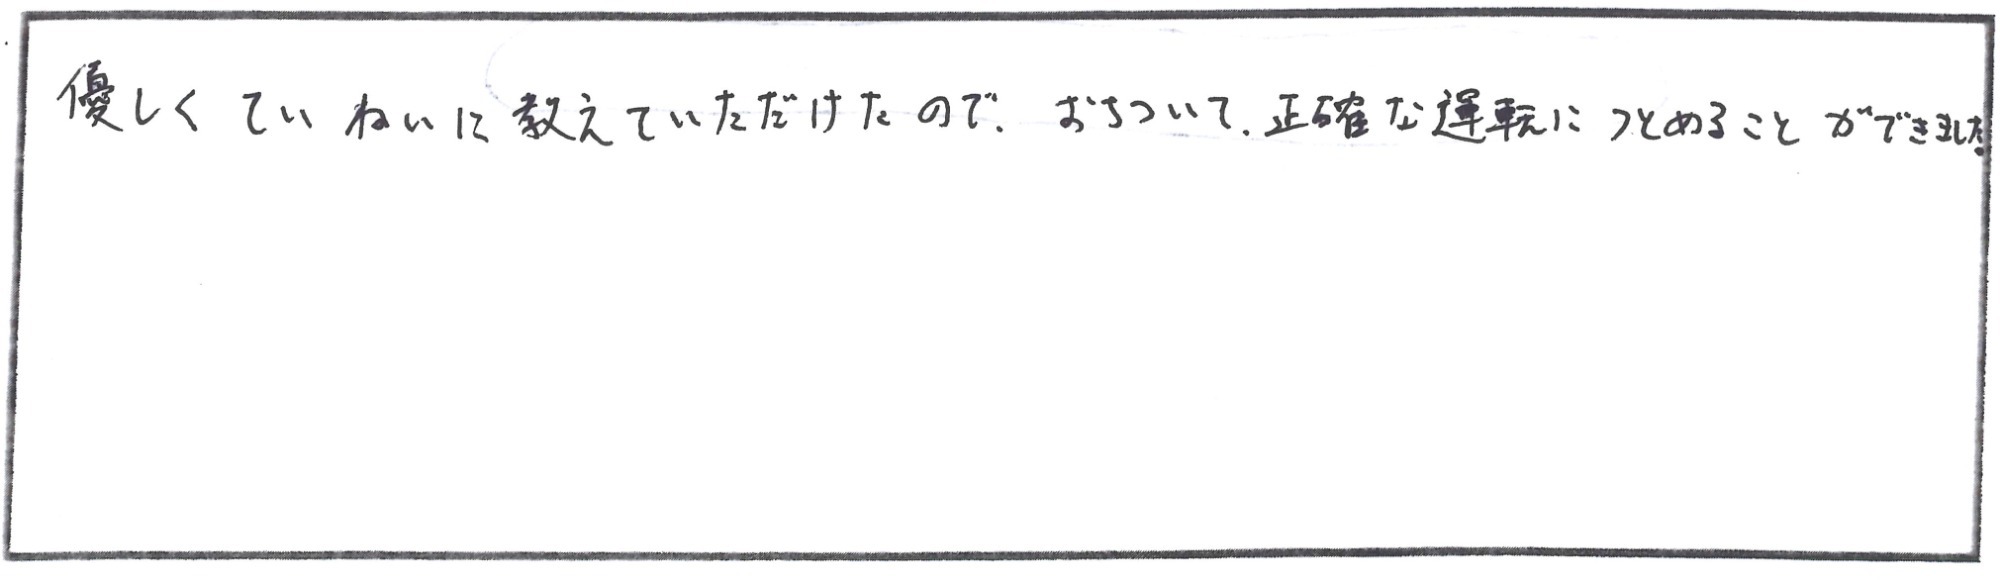 優しくていねいに教えていただけたので、おちついて、正確な運転につとめることができました。